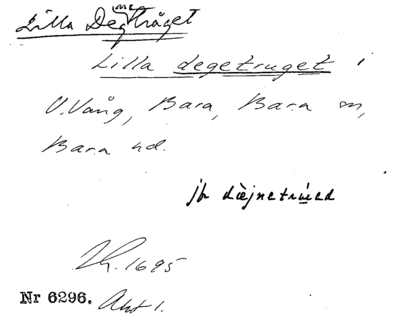 Lilla Degtråget
Lilla degetruget i
V. Vång, Bara, Bara sn,
Bara hd.
jfr
Lh. 1695
Nr 6296. Akt 1.